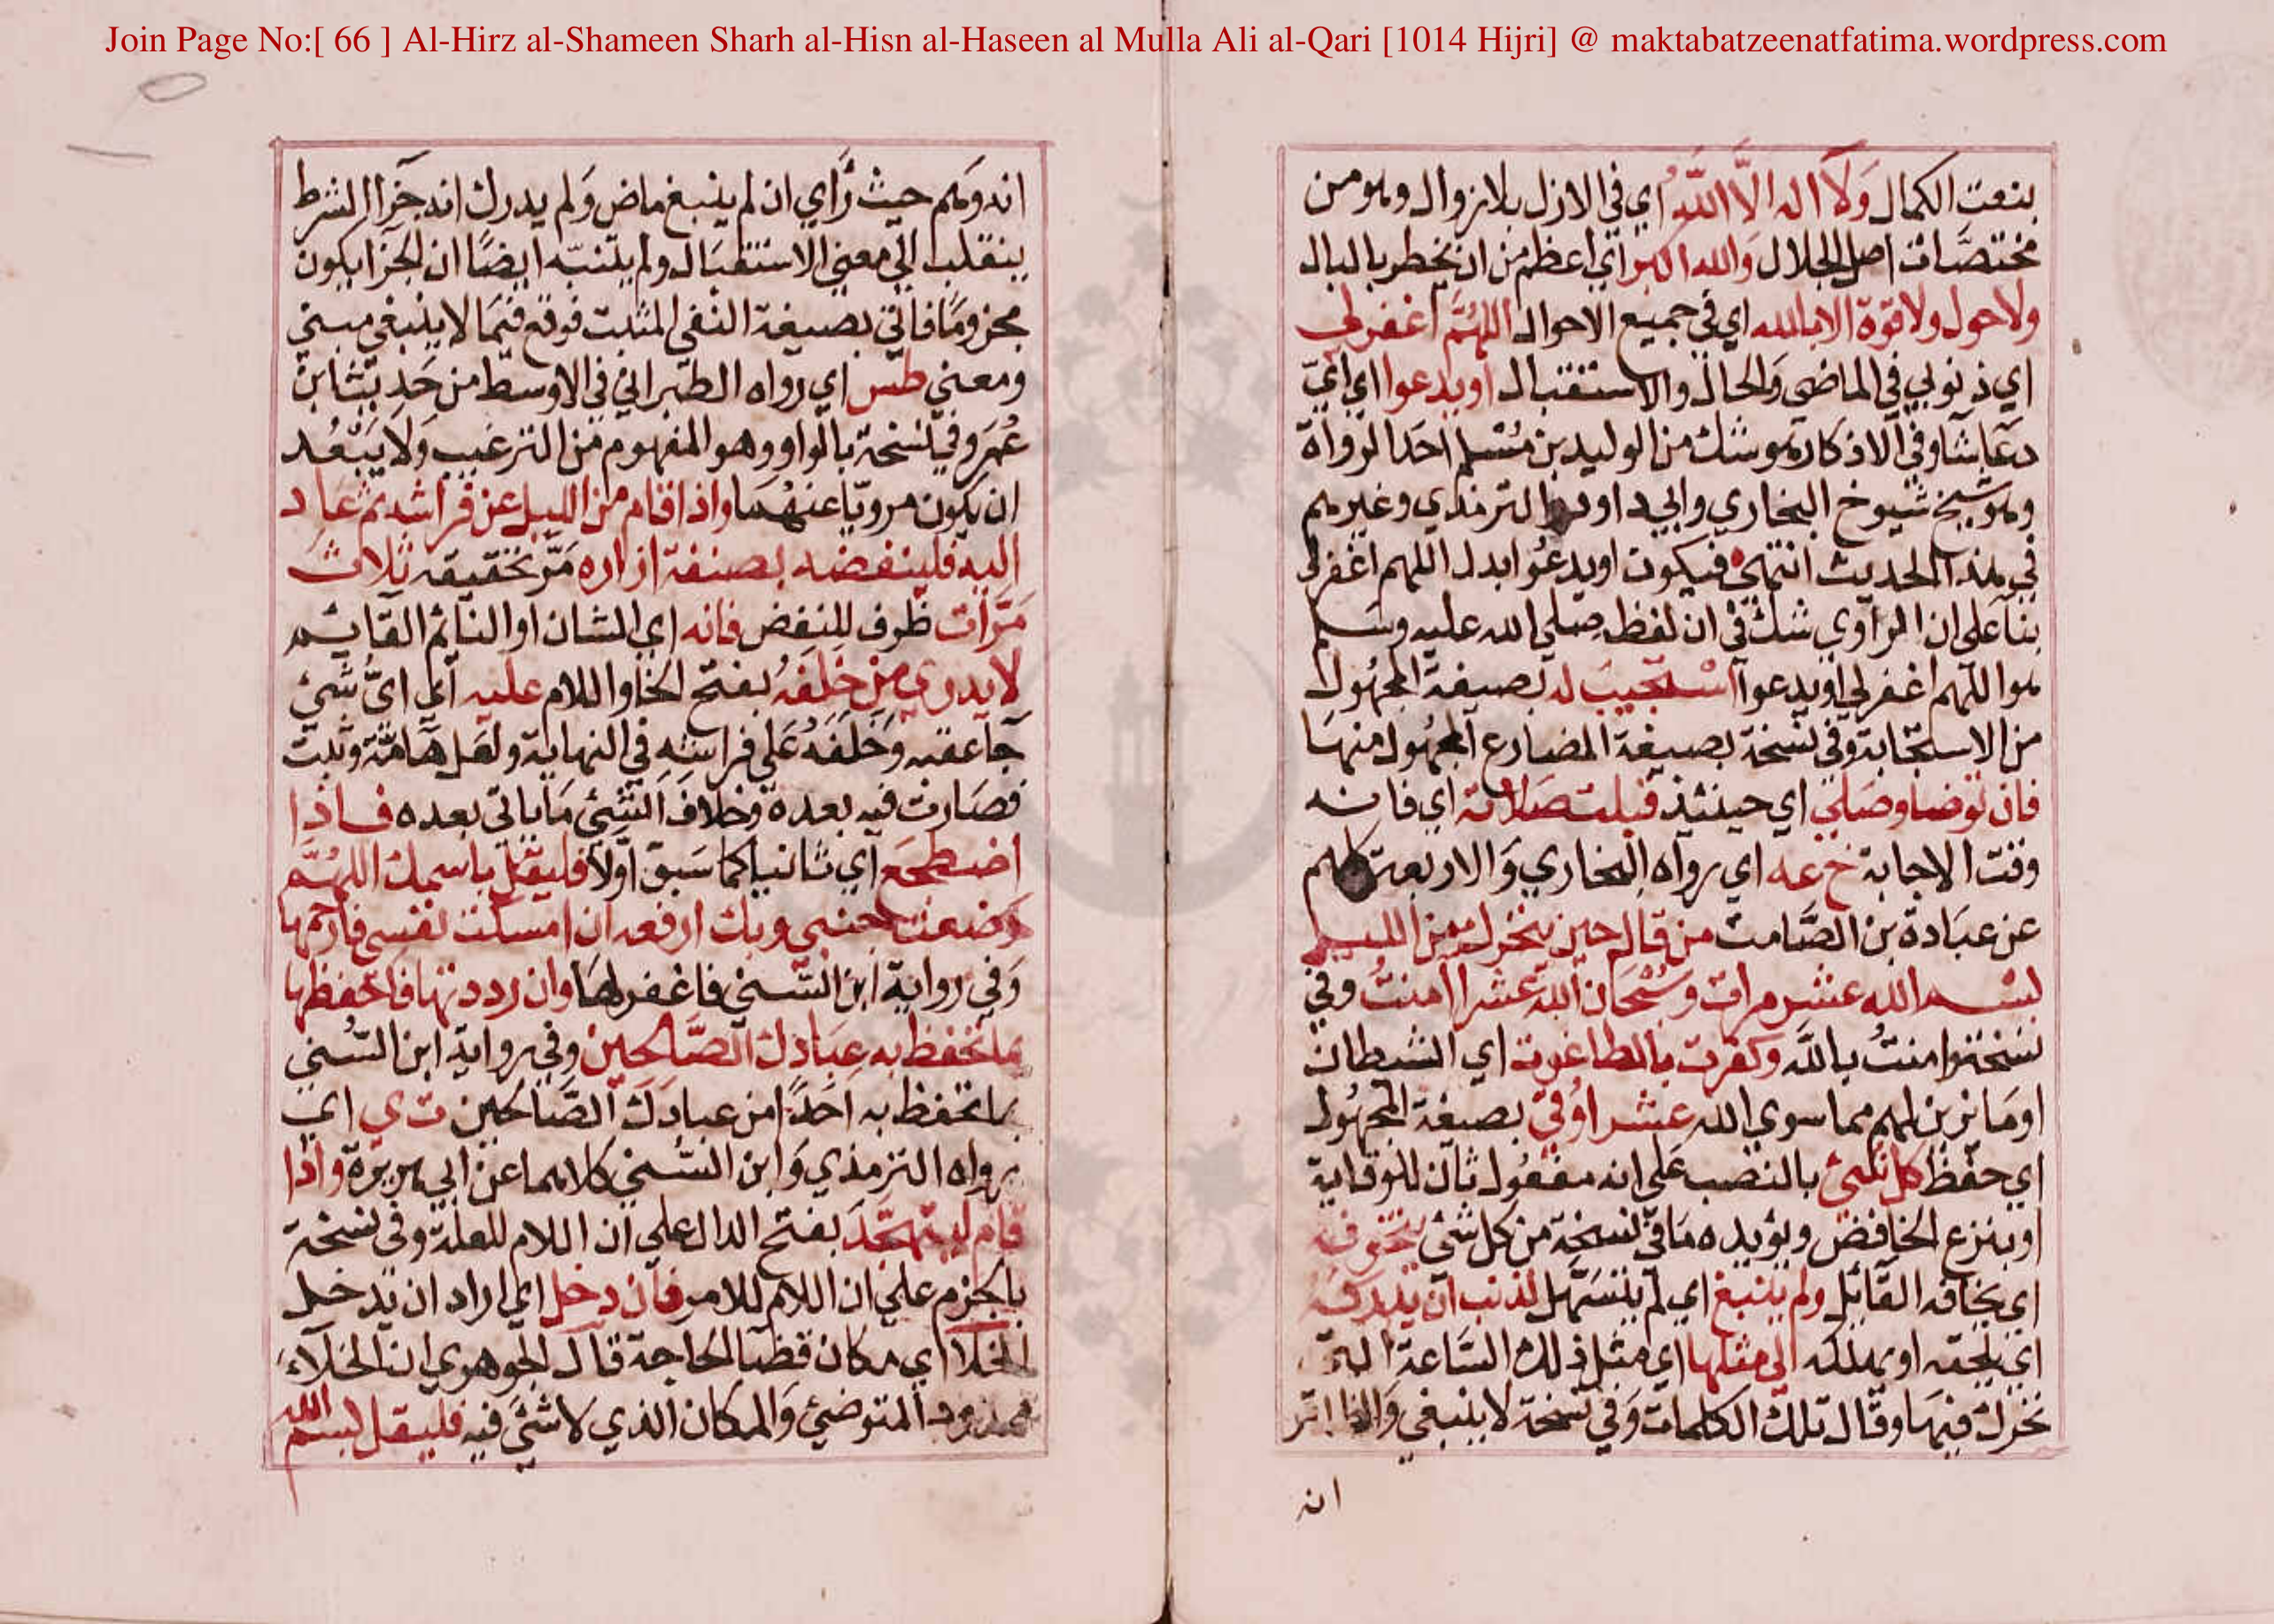 Join Page No:[ 66 ] Al-Hirz al-Shameen Sharh al-Hisn al-Haseen al Mulla Ali al-Qari [1014 Hijri] @ maktabatzeenatfatima.wordpress.com
بنعت الكمال وَلَا اله الَّا اللَّهُ اي في الازل بلا زوال وهو من
مختصات اصل الجلال والله اكبر اي اعظم من ان يخطر بالبال
ولا حول ولا قوة الا بالله اي في جميع الاحوال اللهُمَّ اغفرلي
اي ذنوبي في الماضي والحال والاستقبال او يدعوا اي ايّ
دعا شا وفي الاذكار هو شك من الوليد بن مُسْلم احَد الرواة
وهو شيخ شيوخ البخاري وابي داود والترمذي وغيرهم
في هذا الحديث انتهى فيكون او يدعُو ابدل اللهم اغفرلي
بنا على ان الراوي شك في ان لفظه صلى الله عليه وسَلم
هو اللهم اغفرلي او يدعوا اسْتجيبَ له بصيغة المجهُول
من الاستجابة وفي نسخة بصيغة المضارع المجهُول منهَا
فان توضا وصَلى اي حينئذ قبلت صَلاته اي فانه
وقت الاجابة خ عه اي رواه البخاري وَالاربعة كلهم
عن عبَادة بن الصَّامت من قال حين يتحرك من الليل
بسْم الله عشر مرات وسُبْحَان الله عَشرا امنتُ وفي
نسخة وامنتُ بالله وكفرت بالطاغوت اي الشيطان
او مَا يزين لهم مما سوي الله عشرا وُقي بصيغة المجهُول
اي حفظ كل شيْ بالنصب عَلي انه مفعُول ثان للوقاية
او بنزع الخافض ويؤيده مَا في نسخة من كل شيْ يتخوفه
اي يخافه القائل ولم ينبغ اي لم يتسَهل لذنب ان يدركه
اي يلحقه او يهلكه الي مثلها اي مثل ذلك السَّاعة التي
تحرك فيهَا وقال تلك الكلمات وَفي نسخة لا ينبغي وَالظاهر
انه
انه وَهم حيث رَاي ان لم ينبغ ماض وَلم يدرك انه جَزا الشرط
ينقلب الي معني الاستقبَال ولم يتنبّه ايضًا ان الجزا يكون
مجزومًا فاتي بصيغة النفي المثبت فوقع فيمَا لا ينبغي مبني
ومعني طس اي رواه الطبراني في الاوسط من حَديث ابن
عُمَر وفي نسْخة بالواو وهو المفهوم من الترغيب وَلا يَبْعُد
ان يكون مرويّا عنهُمَا واذا قام من الليل عن فراشه ثم عاد
اليه فلينفضه بصنفة ازاره مَرّ تحقيقه ثلاث
مَرّات ظرف للنفض فانه اي الشان او النائم القائم
لا يدري مَن خلفهُ بفتح الخا واللام عليه اي ايّ شَيْ
جَا عقبه وَخَلفَهُ عَلي فراشه في النهاية ولعل هَامّة دبت
فصَارت فيه بعده وخلاف الشيْ مَا ياتي بعده فاذا
اضطجع اي ثانيا كما سَبق اوّلا فليقل باسمك اللهُمَّ
وضعت جنبي وبك ارفعه ان امسكت نفسي فارحمها
وَفي رواية ابن السّني فاغفرلهَا وان رددتها فاحفظها
بما تحفظ به عبَادك الصَّالحين وفي رواية ابن السُّني
بما تحفظ به اَحَدًا من عبادك الصَّالحين ت ي اي
رواه الترمذي وَابن السُّني كلاهما عن ابي هريرة واذا
قام ليتهجّد بفتح الدال علي ان اللام للعلة وفي نسْخة
بالجزم علي ان اللام للامر فان دخل اي اراد ان يدخل
الخلا اي مكان قضا الحَاجة قال الجوهري ان الخلآء
ممدود المتوضئ وَالمكان الذي لا شيْ فيه فليقل بسم الله